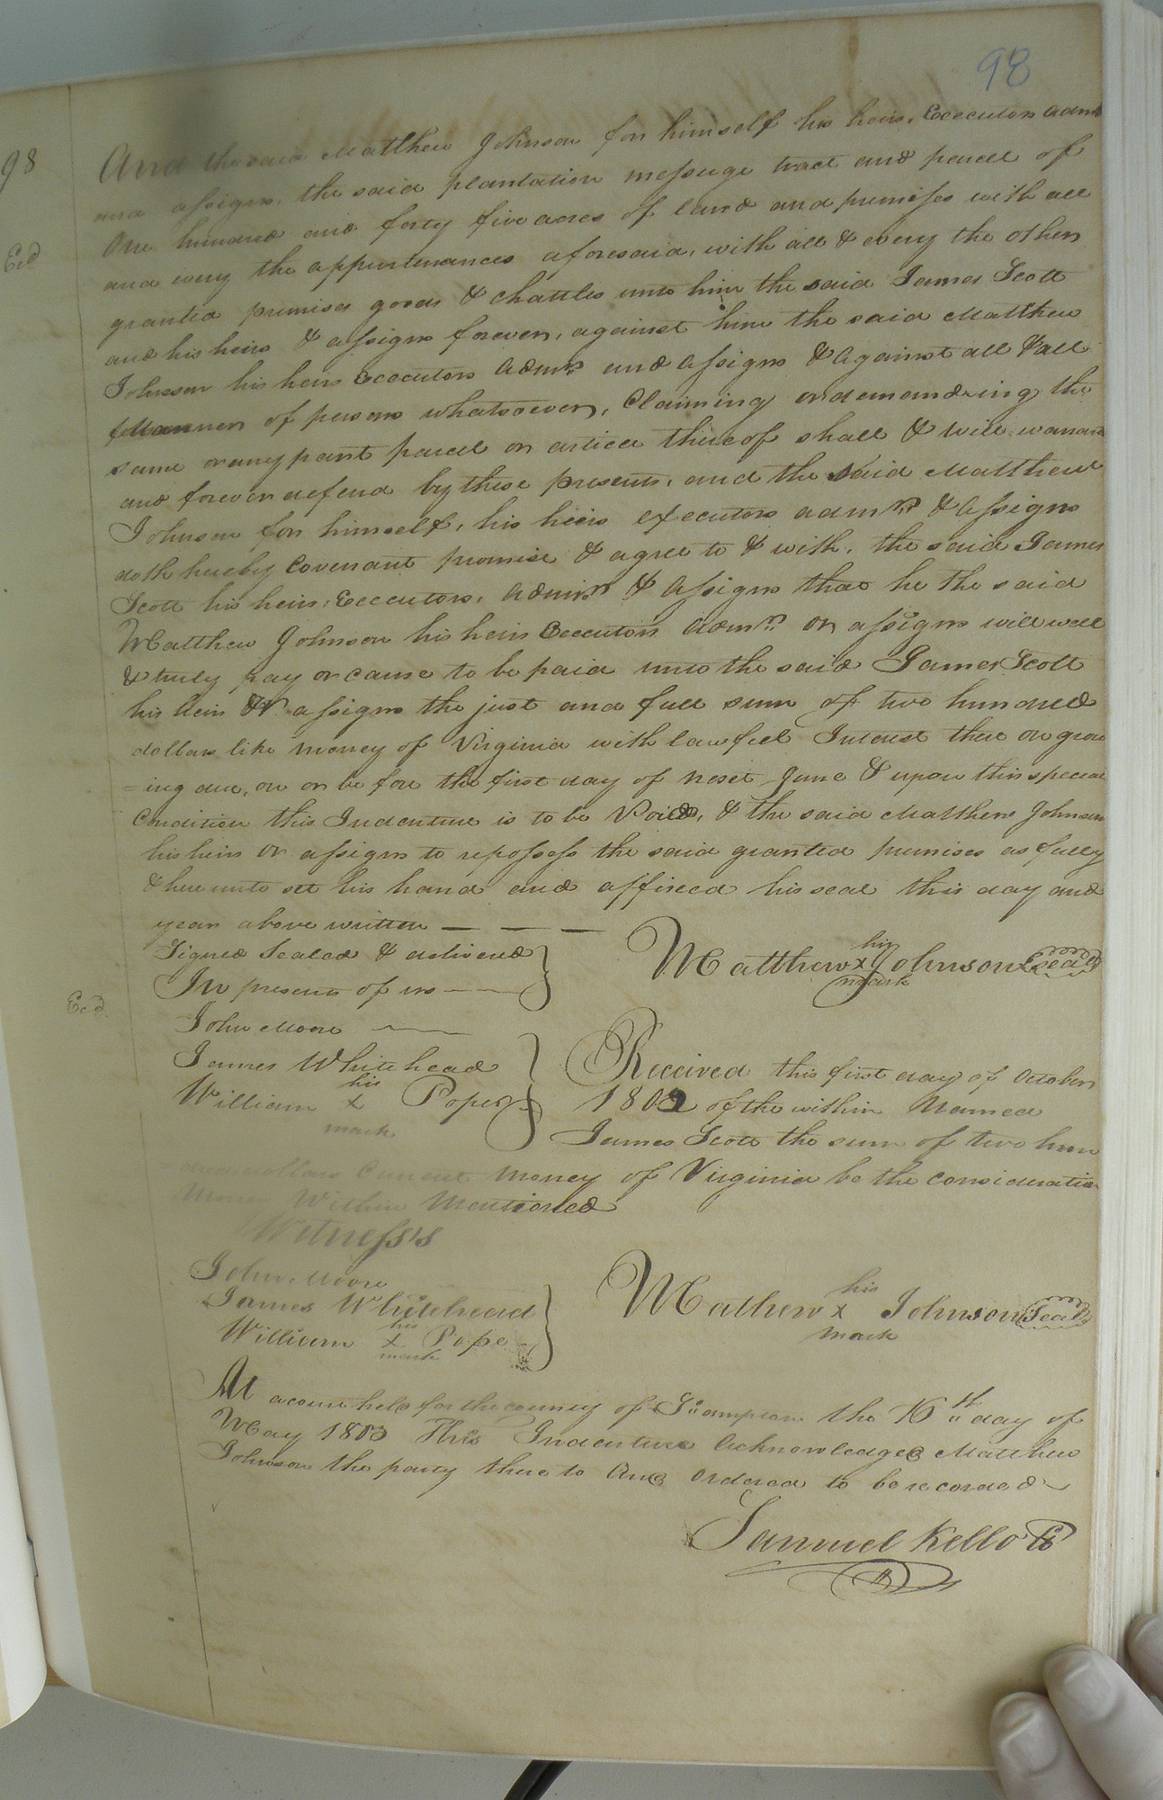 98
98
And the said Matthew Johnson for himself his heirs, Executors adms
and assigns, the said plantation messuge tract and parcell of
One hundred and forty five acres of land and premises with all
Ecd
and every the appurtenances aforesaid, with all & every the other
granted premises goods & chattles unto him the said James Scott
and his heirs & assigns forever, against him the said Matthew
Johnson his heirs Executors Admrs and assigns & Against all & all
Mannen of persons whatsoever, Claiming or demandeing the
same or any part parcell or article thereof shall & will warrant
and forever defend by these presents, and the said Matthew
Johnson for himself, his heirs executors admrs & Assigns
doth hereby Covenant promise & agree to & with, the said James
Scott his heirs, Executors, Admrs & Assigns that he the said
Matthew Johnson his heirs Executors Admrs or assigns will well
& truly pay or cause to be paid unto the said James Scott
his heirs or assigns the just and full sum of two hundred
dollars like money of Virginia with lawfull Interest there on grow
=ing due, on or before the first day of next June & upon this special
Condition this Indenture is to be Void, & the said Matthew Johnson
his heirs or assigns to repossess the said granted premises as fully
& hereunto set his hand and affixed his seal this day and
year above written — — —
Signed Sealed & delivered
In presents of us ——
Matthew his x mark Johnson Seal
Ecd
John Moore
James Whitehead
William his x mark Pope
Received this first day of October
1802 of the within Named
James Scott the sum of two hun
dred dollars Current money of Virginia be the consideration
Money Within Mentioned
Witness's
John Moore
James Whitehead
William his x mark Pope
Mathew his x mark Johnson Seal
At a court held for the county of So:ampton the 16th day of
May 1803 This Indenture Acknowledged Matthew
Johnson the party there to And Ordered to be recorded
Samuel Kello Cl